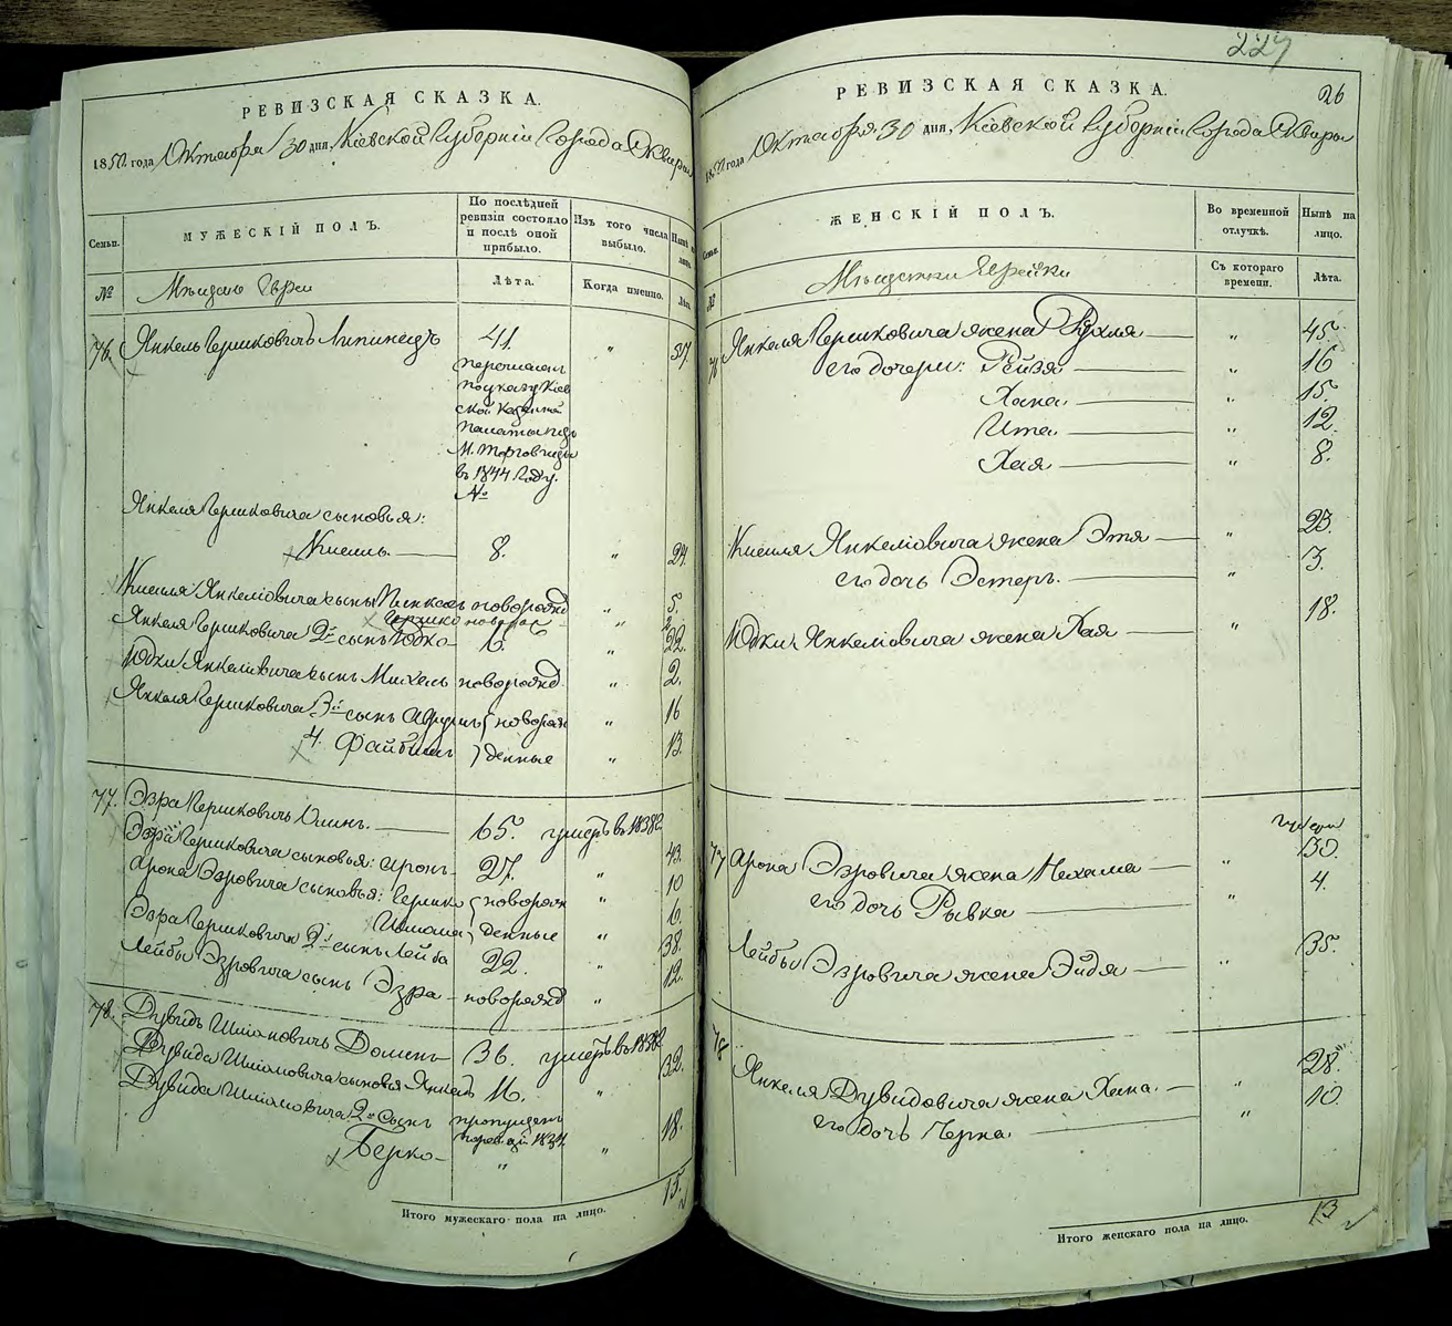 227
РЕВИЗСКАЯ СКАЗКА.
1850 года Октября 30 дня, Кіевской Губерніи Города Сквиры
Семьи.
МУЖЕСКІЙ ПОЛЪ.
По послѣдней ревизіи состояло и послѣ оной прибыло.
Изъ того числа выбыло.
Нынѣ на лицо.
№
Мѣщане Евреи
Лѣта.
Когда именно.
Лѣта.
76. Янкель Гершковичъ Липинецъ 41. " 57.
перечислен
по указу Кіев
ской Казенной
Палаты изъ
М. Торговицы
въ 1844 Году.
№
Янкеля Гершковича сыновья:
Кисиль 8. " 24.
Кисиля Янкеліовича сынъ Пинкасъ новорожд " 5.
Гершко новорож " 2
Янкеля Гершковича 2й сынъ Юдко 6. " 22.
Юдки Янкеліовича сынъ Михель новорожд " 2.
Янкеля Гершковича 3й сынъ новорож " 16
4. Файбишъ денные " 13.
77. Эзра Гершковичъ 65. умеръ въ 1838г.
Эзра Гершковича сыновья: Аронъ 27. " 43.
Арона Эзровича сыновья: Гершко новорож " 10
денные " 6.
Эзра Гершковича 2й сынъ Лейба 22. " 38.
Лейбы Эзровича сынъ Эзра новорожд " 12.
78. Дувидъ 36. умеръ въ 1838г
Дувида сыновья Янкель 16. " 32.
Дувида 2й Сынъ пропущен
по ревизіи 1834.
Берко " " 18.
Итого мужескаго пола на лицо. 15.
РЕВИЗСКАЯ СКАЗКА.
26
1850 года Октября 30 дня, Кіевской Губерніи Города Сквиры
Семьи.
ЖЕНСКІЙ ПОЛЪ.
Во временной отлучкѣ.
Нынѣ на лицо.
№
Мѣщанки Еврейки
Съ котораго времени.
Лѣта.
76 Янкеля Гершковича жена Рухля " 45.
его дочери: Рейзя " 16
Хана " 15.
Ита " 12.
Хая " 8.
Кисиля Янкеліовича жена Этя " 23.
его дочь Эстеръ " 3.
Юдки Янкеліовича жена Хая " 18.
77 Арона Эзровича жена Нехама " 30.
его дочь Рывка " 4.
Лейбы Эзровича жена Эйдя " 35.
78 Янкеля Дувидовича жена Хана " 28.
его дочь Черна " 10.
Итого женскаго пола на лицо. 13